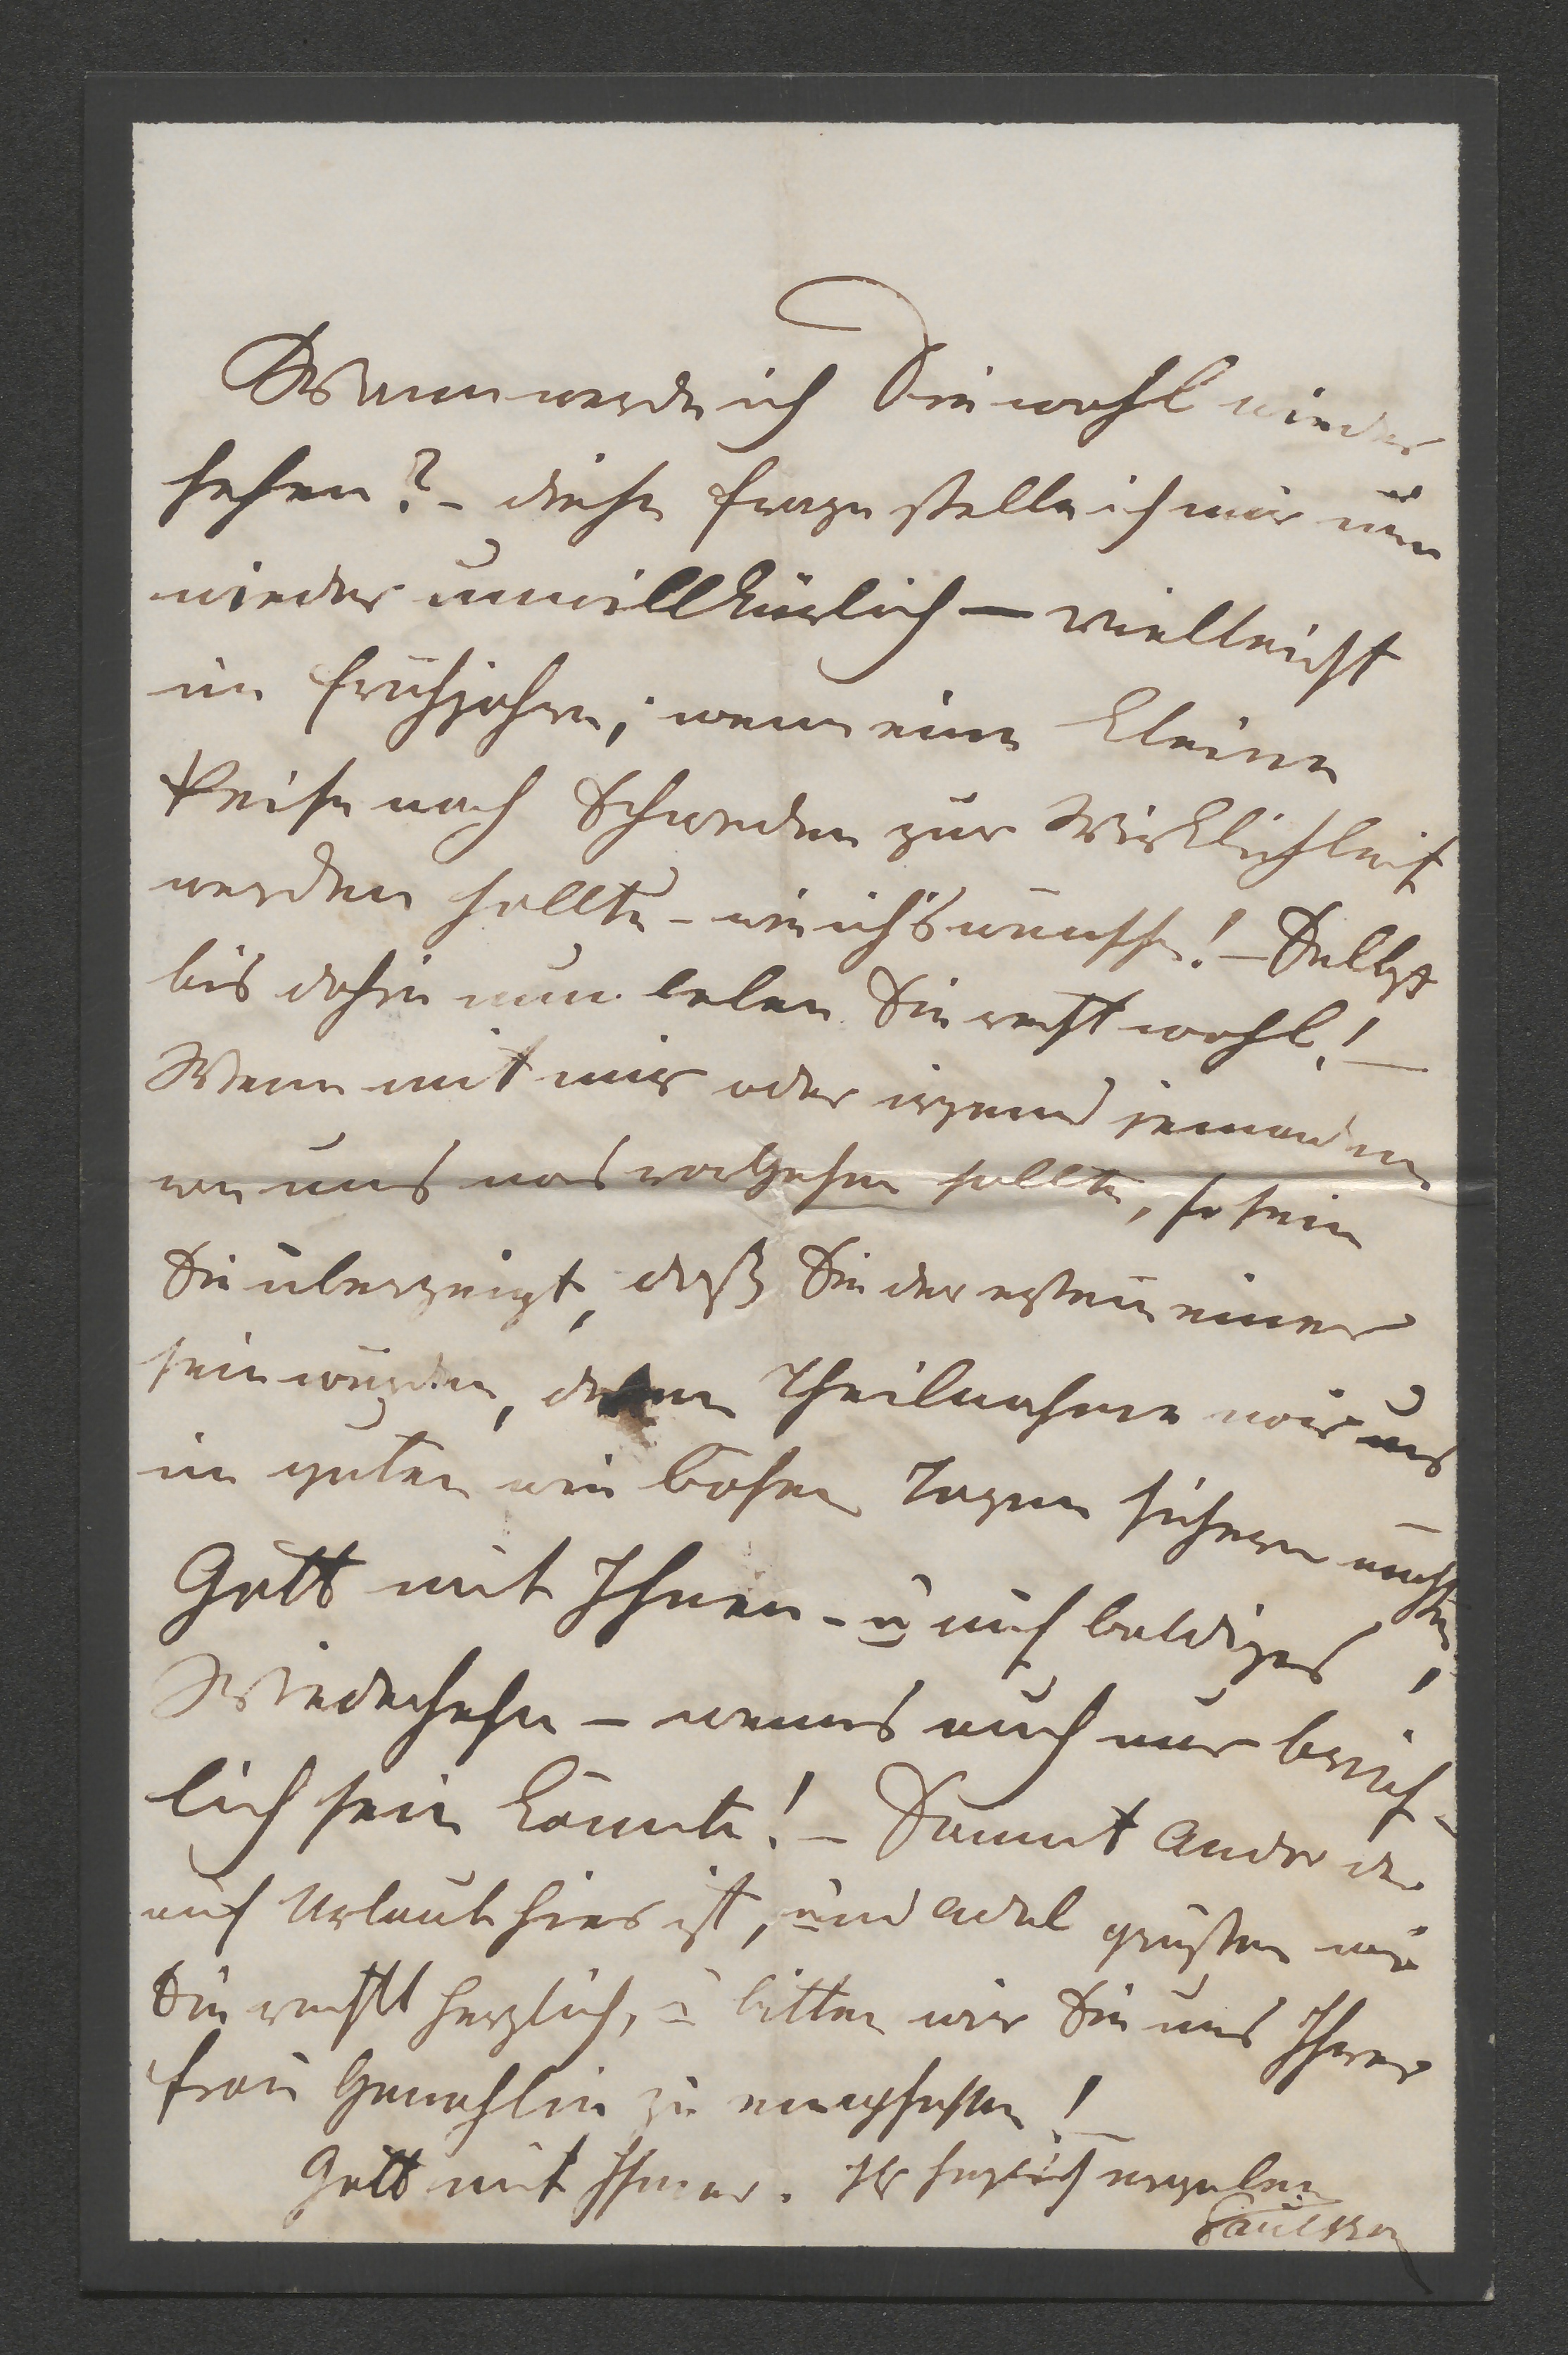 Wann werde ich Sie wohl wieder
sehen? – diese Frage stelle ich mir nun
wieder unwillkürlich – vielleicht
im Frühjahre, wenn eine kleine
Reise nach Schweden zur Wirklichkeit
werden sollte – wie ich's wünsche! – Selbst
bis dahin nun leben Sie recht wohl! –
Wenn mit mir oder irgend jemandem
von uns was vorgehen sollte, so sein
Sie überzeigt, daß Sie der ersten einer
sein würden, dessen Theilnahme wir uns
in guten wie bösen Tagen sichern möchten!
Gott mit Ihnen – u auf baldiges
Wiedersehn – wenns auch nur brief-
lich sein könnte! – Sammt Ander der
auf Urlaub hier ist, und Adel grüßen wir
Sie recht herzlich, u bitten wir Sie uns Ihrer
Frau Gemahlin zu empfehlen! –
Gott mit Ihnen. Ihr herzlich ergeben